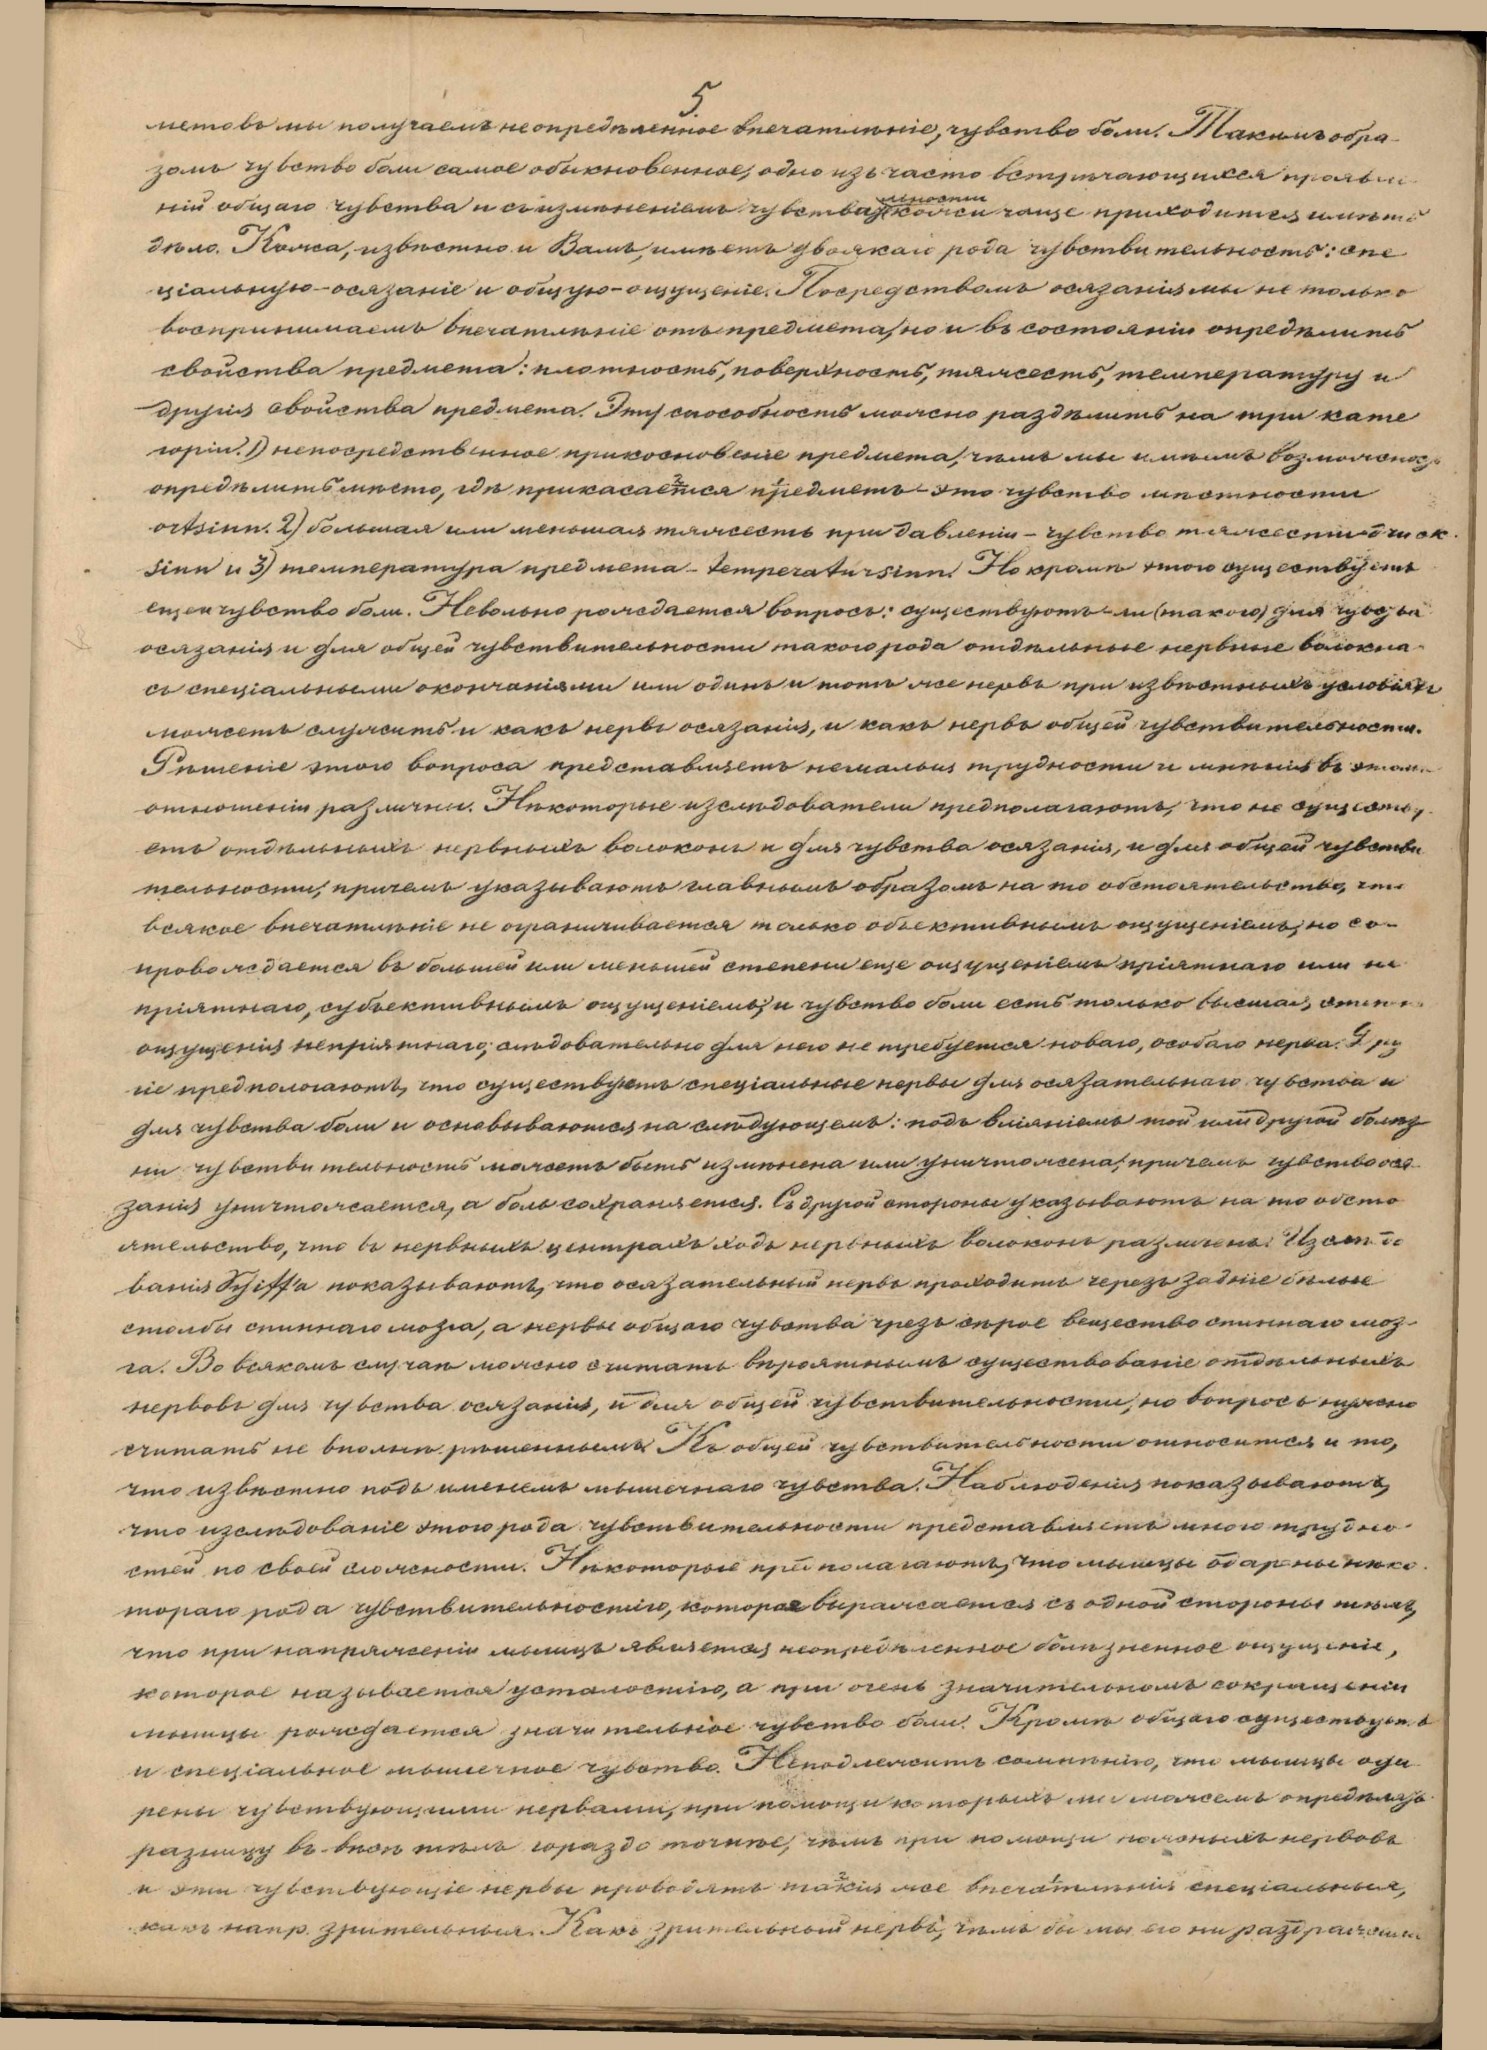 5.
метовъ мы получаемъ неопредѣленное впечатлѣніе, чувство боли. Такимъ обра-
зомъ чувство боли самое обыкновенное, одно изъ часто встрѣчающихся проявле-
ній общаго чувства и съ измѣненіемъ чувстви льности кожи чаще приходится имѣть
дѣло. Кожа, извѣстно и Вамъ, имѣетъ двоякаго рода чувствительность: спе
ціальную - осязаніе и общую - ощущеніе. Посредствомъ осязанія мы не только
воспринимаемъ впечатлѣніе отъ предмета, но и въ состояніи опредѣлить
свойства предмета: плотность, поверхность, тяжесть, температуру и
другія свойства предмета. Эту способность можно раздѣлить на три кате
горіи. 1) непосредственное прикосновеніе предмета, чѣмъ мы имѣемъ возможность
опредѣлить мѣсто, гдѣ прикасается предметъ - это чувство мѣстности
ortsinn. 2) большая или меньшая тяжесть при давленіи - чувство тяжести druck
sinn и 3) температура предмета - temperatursinn. Но кромѣ этого существуетъ
еще и чувство боли. Невольно рождается вопросъ: существуютъ-ли (такого) для чувства
осязанія и для общей чувствительности такого рода отдѣльные нервные волокна
съ спеціальными окончаніями или одинъ и тотъ же нервъ при извѣстныхъ условіяхъ
можетъ служить и какъ нервъ осязанія, и какъ нервъ общей чувствительности.
Рѣшеніе этого вопроса представляетъ немалыя трудности и мнѣнія въ этомъ
отношеніи различны. Нѣкоторые изслѣдователи предполагаютъ, что не существу-
етъ отдѣльныхъ нервныхъ волоконъ и для чувства осязанія, и для общей чувстви
тельности, причемъ указываютъ главнымъ образомъ на то обстоятельство, что
всякое впечатлѣніе не ограничивается только объективнымъ ощущеніемъ, но со-
провождается въ большей или меньшей степени еще ощущеніемъ пріятнаго или не
пріятнаго, субъективнымъ ощущеніемъ, и чувство боли есть только высшая степень
ощущенія непріятнаго; слѣдовательно для него не требуется новаго, особаго нерва. Дру
гіе предпологаютъ, что существуютъ спеціальные нервы для осязательнаго чувства и
для чувства боли и основываются на слѣдующемъ: подъ вліяніемъ той или другой болѣз
ни чувствительность можетъ быть измѣнена или уничтожена, причемъ чувство ося-
занія уничтожается, а боль сохраняется. Съ другой стороны указываютъ на то обсто
ятельство, что въ нервныхъ центрахъ ходъ нервныхъ волоконъ различенъ. Изслѣдо
ванія Schiff'а показываютъ, что осязательный нервъ проходитъ черезъ задніе бѣлые
столбы спиннаго мозга, а нервы общаго чувства чрезъ сѣрое вещество спиннаго моз-
га. Во всякомъ случаѣ можно считать вѣроятнымъ существованіе отдѣльныхъ
нервовъ для чувства осязанія, и для общей чувствительности, но вопросъ нужно
считать не вполнѣ рѣшеннымъ. Къ общей чувствительности относится и то,
что извѣстно подъ именемъ мышечнаго чувства. Наблюденія показываютъ,
что изслѣдованіе этого рода чувствительности представляетъ много трудно-
стей по своей сложности. Нѣкоторые предполагаютъ, что мышцы одарены нѣко-
тораго рода чувствительностію, которая выражается съ одной стороны тѣмъ,
что при напряженіи мышцъ является неопредѣленное болѣзненное ощущеніе,
которое называется усталостію, а при очень значительномъ сокращеніи
мышцы рождается значительное чувство боли. Кромѣ общаго существуетъ
и спеціальное мышечное чувство. Неподлежитъ сомнѣнію, что мышцы ода
рены чувствующими нервами, при помощи которыхъ мы можемъ опредѣлять
разницу въ вѣсѣ тѣлъ гораздо точнѣе, чѣмъ при помощи кожныхъ нервовъ
и эти чувствующіе нервы проводятъ такія же впечатлѣнія спеціальныя,
какъ напр. зрительныя. Какъ зрительный нервъ, чѣмъ бы мы его ни раздражали